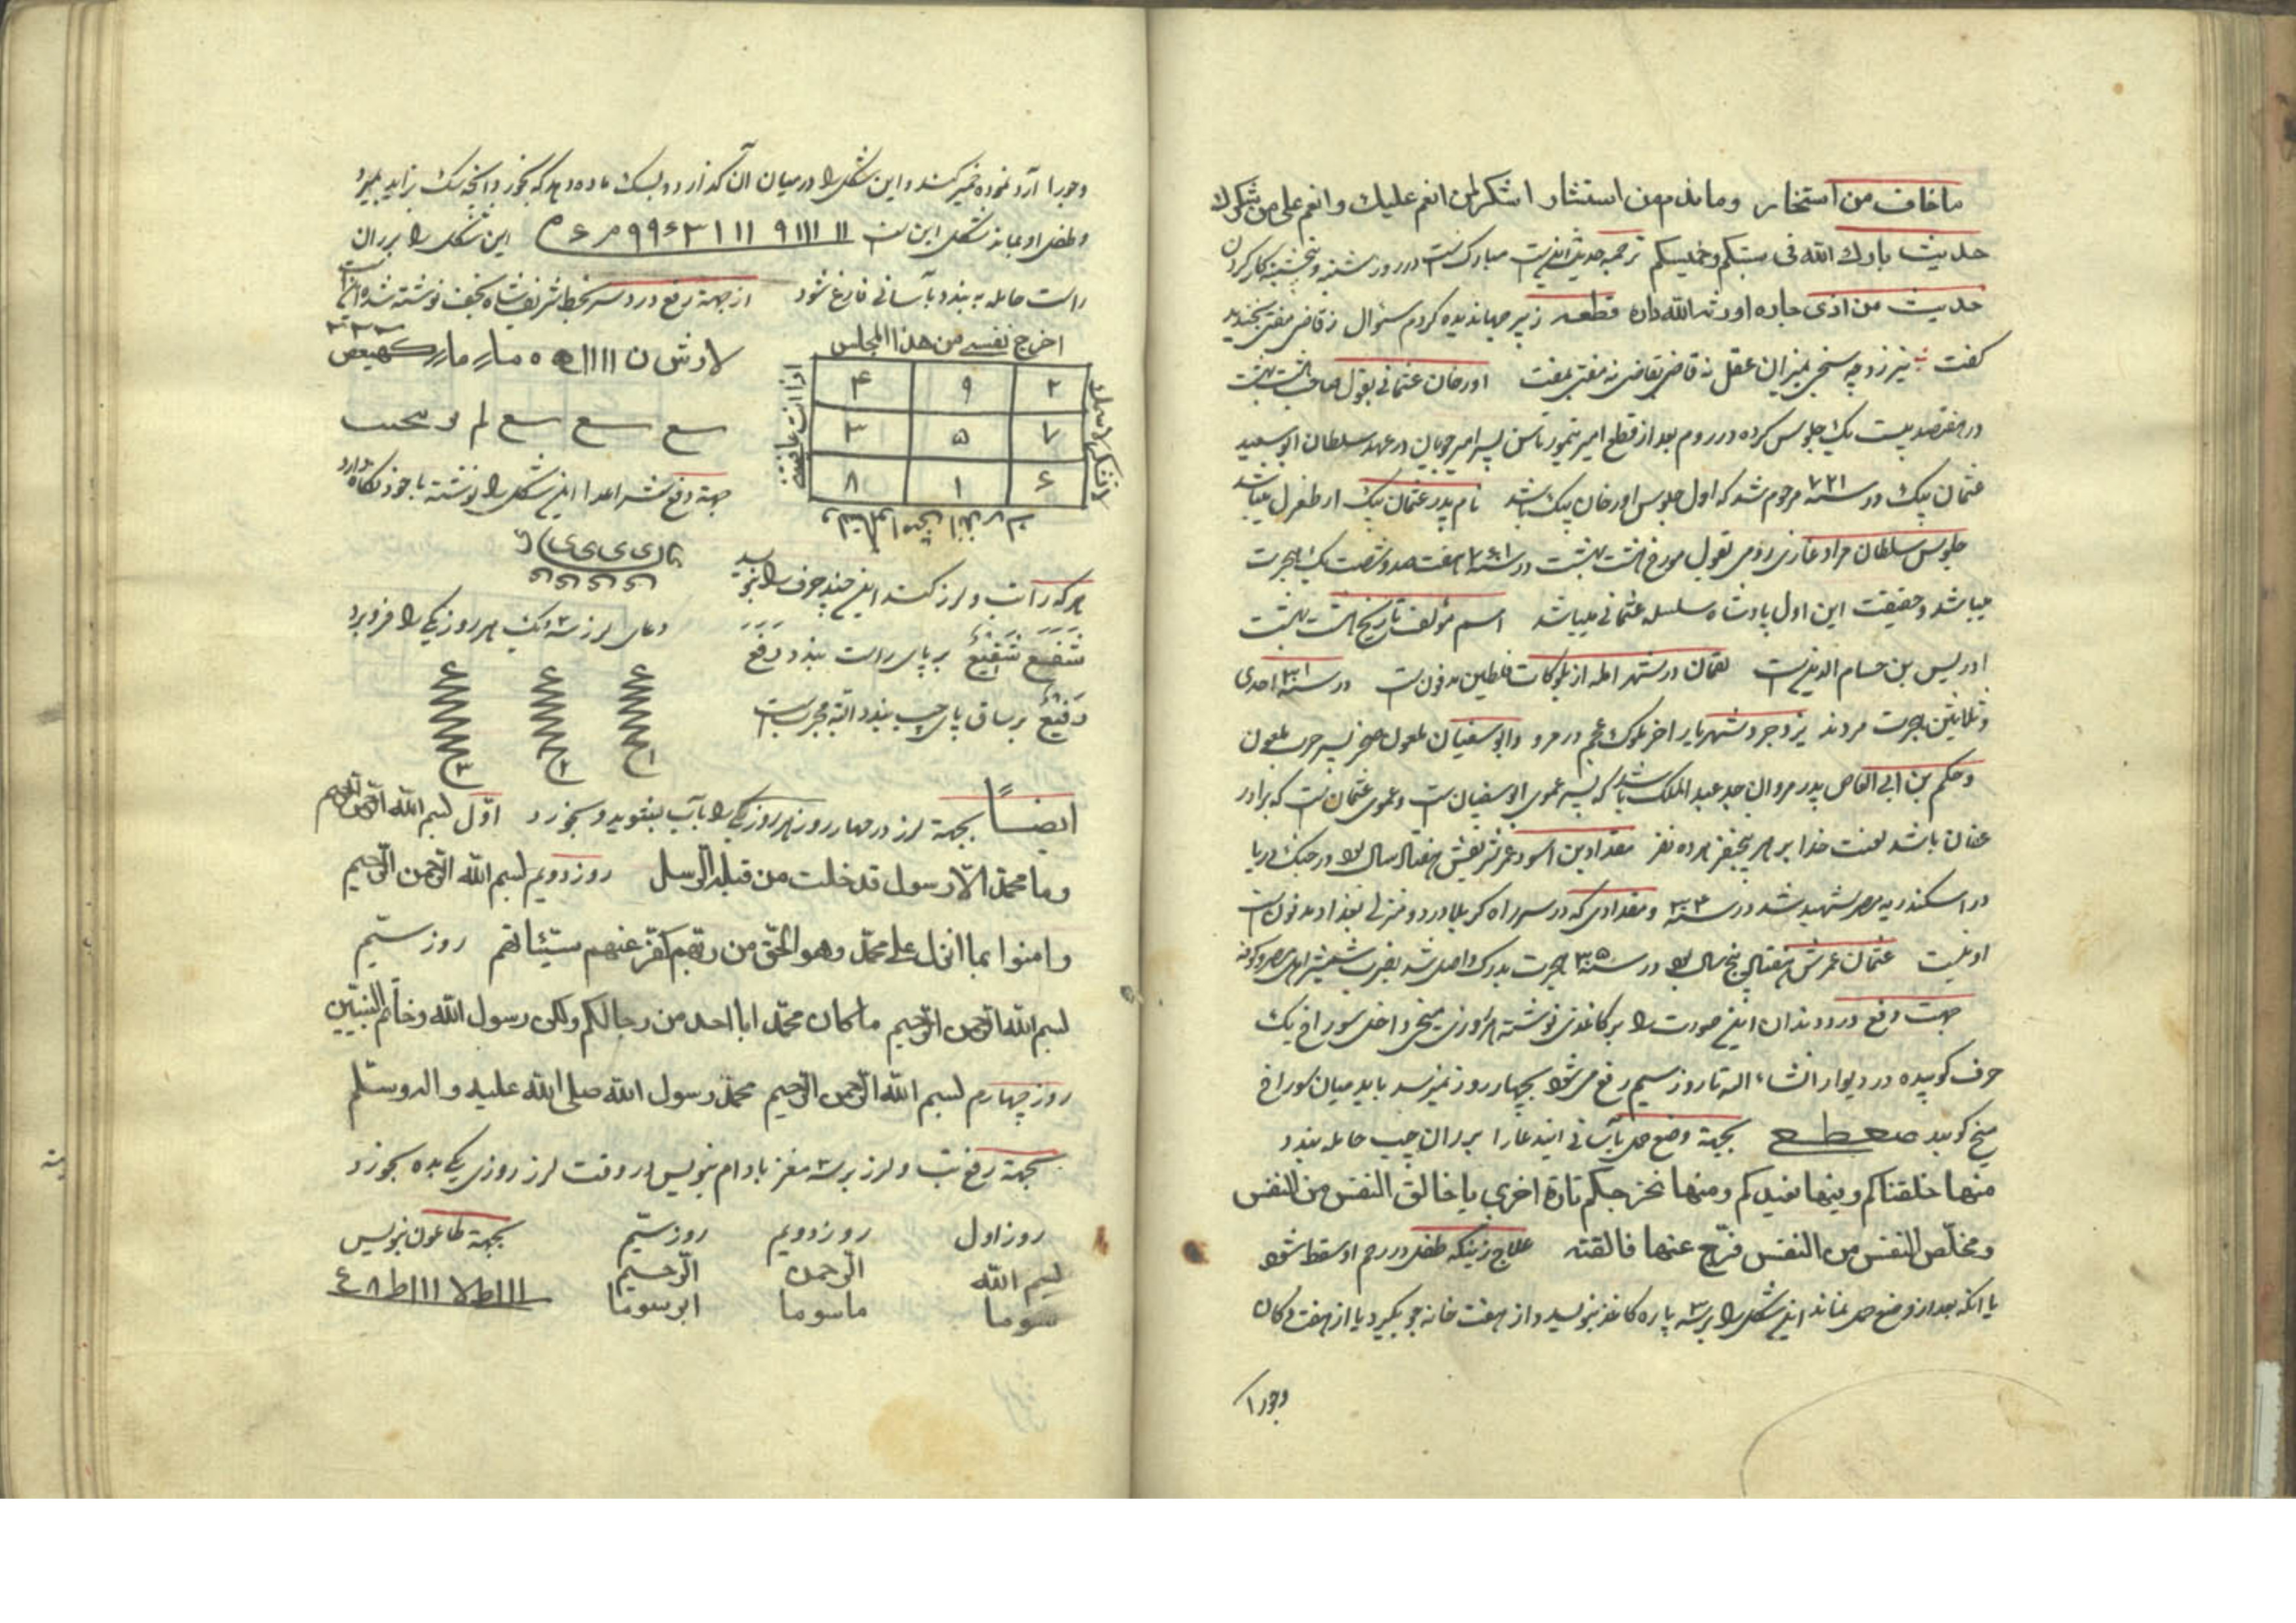 ماخاف من استخار وماندم من استشار اشکر لمن انعم علیك وانعم علی من شکرك
حدیث بارك الله فی سبتکم وخمیسکم ترجمه حدیث اینست مبارکست در روز شنبه و پنجشنبه کار کردن
حدیث من اذی جاره اورثه الله داره قطعه ز پیر جهاندیده کردم سئوال ز قاضی مفتی
گفت نیرزد چه سنجی بمیزان عقل نه قاضی بقاضی نه مفتی بمفت اورخان عثمانی بقول صاحب هشت بهشت
در هفتصد بیست یك جلوس کرده در روم بعد از قطع امیر تیمورتاش پسر امیر چوپان در عهد سلطان ابو سعید
عثمان بیك در سنه ۷۲۱ مرحوم شد که اول جلوس اورخان بیك باشد نام پدر عثمان بیك ارطغرل میباشد
جلوس سلطان مراد غازی رومی بقول مورخ هشت بهشت در سنه ۷۶۱ هفتصد و شصت یك هجرت
میباشد و حقیقت این اول پادشاه سلسله عثمانی میباشد اسم مؤلف تاریخ هشت بهشت
ادریس بن حسام الدینست لقمان در شهر از بلوکات فلطین مدفونست در سنه ۳۱ احدی
وثلاثین هجرت مردند یزدجرد شهریار اخر ملوك عجم در مرو و ابو سفیان ملعون صخر پسر حرب ملعون
وحکم بن ابی العاص پدر مروان جد عبد الملك باشد که پسر عموی ابو سفیانست و عموی عثمانست که برادر
عفان باشد لعنت خدا بر هر پنج نفر هر ده نفر مقداد بن اسود عمر شریفش هفتاد سال بود در جنك دریا
در اسکندریه مصر شهید شد در سنه ۳۳ و مقدادی که در سر راه کربلا در دو منزلی بغداد مدفونست
او نیست عثمان عمرش هفتاد پنج سال بود در سنه ۳۵ هجرت بدرك واصل شد بضرب شمشیر اهل مصر و کوفه
جهت دفع درد دندان این صورت را بر کاغذی نوشته هر روزی میخی داخل سوراخ یك
حرف کوبیده در دیوار انشاء الله تا روز سیم رفع می شود بچهار روز نمیرسد باید میان سوراخ
میخ کوبید صعطع بجهة وضع حمل بآسانی ایندعا را بر ران چپ حامله بندد
منها خلقناکم وفیها نعیدکم ومنها نخرجکم تارة اخری یا خالق النفس من النفس
ومخلّص النفس من النفس فرّج عنها فالقته علاج زنیکه طفل در رحم او سقط شود
یا انکه بعد از وضع حمل نماند این شکل را بر سه پاره کاغذ بنویسد و از هفت خانه جو بگیرد یا از هفت دکان
وجو را
وجو را آرد نموده خمیر کند و این شکل را در میان آن گذارد و بسك ماده دهد که بخورد و انچه سك بزاید بمیرد
وطفل او بماند شکل این است ااا ۹ اا ا ۳ این شکل را بر ران
راست حامله به بندد بآسانی فارغ شود از جهة رفع درد سر بخط شریف شاه نجف نوشته شده
اخرج نفسی من هذا المجلس
۴ ۹ ۲
۳ ۵ ۷
۸ ۱ ۶
لاوش ن اااا ه ه مار مار کهیعص
سع سع سع لم
جهة دفع شر اعدا این شکل را نوشته با خود نگاه دارد
هر که را تب و لرز کند این چند حرف را بنویسد
شفیع شفیع بر پای راست بندد دفع
دفیع بر ساق پای چپ بندد البته مجربست
دعای لرز سه تکه هر روز یکی را فرو برد
۱ ۲ ۳
ایضاً بجهة لرز در چهار روز هر روز یکی را بآب بشوید و بخورد اوّل بسم الله الرّحمن الرّحیم
وما محمّد الّا رسول قد خلت من قبله الرّسل روز دویم بسم الله الرّحمن الرّحیم
وامنوا بما انزل علی محمّد وهو الحقّ من ربّهم کفّر عنهم سیّئاتهم روز سیّم
بسم الله الرّحمن الرّحیم ما کان محمّد ابا احد من رجالکم ولکن رسول الله وخاتم النّبیّین
روز چهارم بسم الله الرّحمن الرّحیم محمّد رسول الله صلی الله علیه واله وسلّم
بجهة رفع تب و لرز بر سه مغز بادام بنویس در وقت لرز روزی یکی بده بخورد
روز اول روز دویم روز سیّم بجهة طاعون بنویس
بسم الله الرّحمن الرّحیم
سوما ماسوما ابوسوما